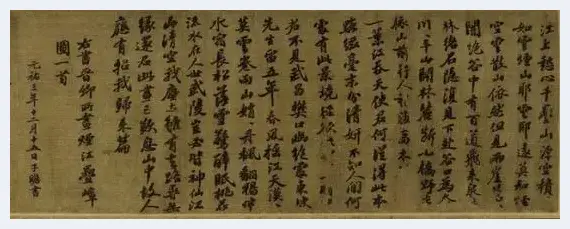 江上愁心千疊山浮空積
如雲煙山耶雲耶遠莫知煙
空雲散山依然但見兩崖
闇絕谷中有百道飛來泉
林絡石隱復見下赴谷口為
川川平山開林麓斷小橋野店
依山前行人稍度喬木
一葉江吞天使君何從得此本
點綴毫末分清妍不知人間何
處有此景徑欲
君不見武昌樊口幽絕處東坡
先生留五年春風搖江天漠漠
暮雲卷雨山娟娟丹楓翻鴉伴
水宿長松落雪驚醉眠桃花
流水在人世武陵豈必皆神仙江
山清空我塵土雖有去路尋無
緣還君此畫三歎息山中故人
應有招我歸來篇
右書晉卿所畫煙江疊嶂
圖一首
元祐三年十二月十五日子瞻書